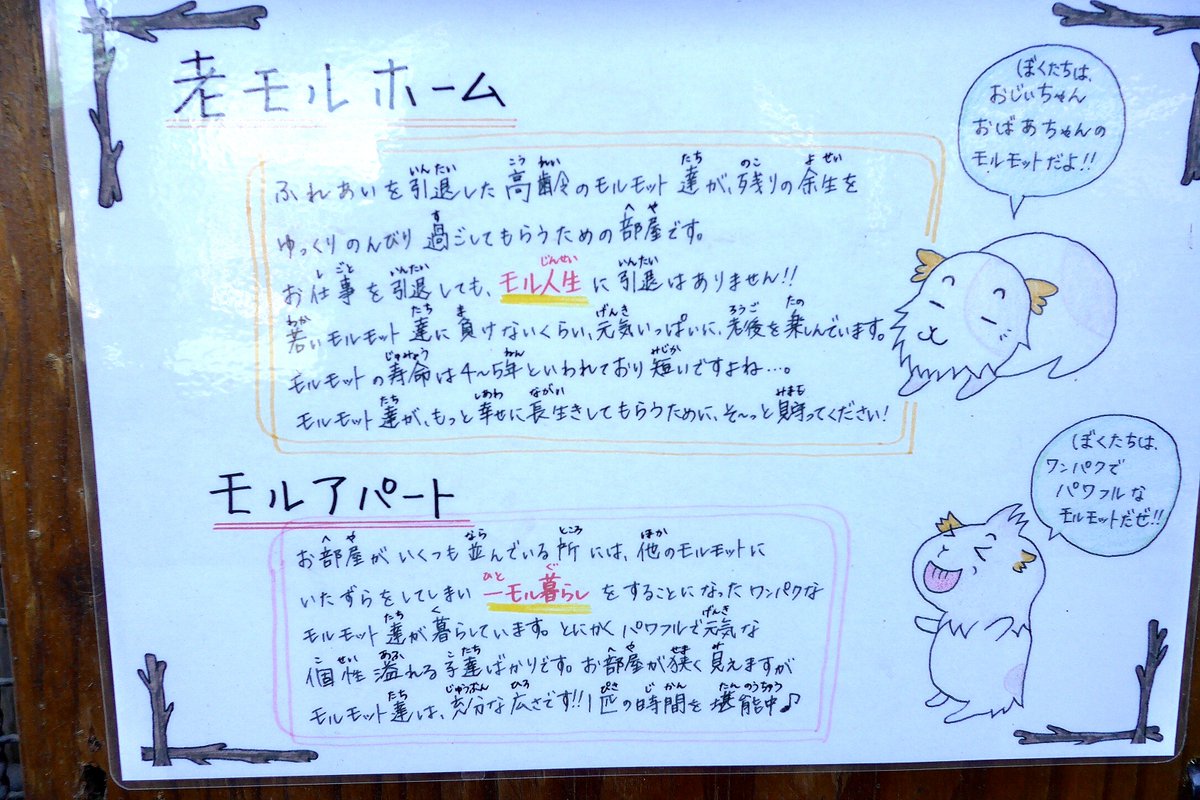 老モルホーム
ふれあいを引退した高齢のモルモット達が、残りの余生を
ゆっくりのんびり過ごしてもらうための部屋です。
お仕事を引退しても、モル人生に引退はありません!!
若いモルモット達に負けないくらい、元気いっぱいに、老後を楽しんでいます。
モルモットの寿命は4~5年といわれており短いですよね…。
モルモット達が、もっと幸せに長生きしてもらうために、そ~っと見守ってください!
ぼくたちは、
おじぃちゃん
おばあちゃんの
モルモットだよ!!
モルアパート
お部屋がいくつも並んでいる所には、他のモルモットに
いたずらをしてしまい一モル暮らしをすることになったワンパクな
モルモット達が暮らしています。とにかくパワフルで元気な
個性溢れる子達ばかりです。お部屋が狭く見えますが
モルモット達は、充分な広さです!!1匹の時間を堪能中♪
ぼくたちは、
ワンパクで
パワフルな
モルモットだぜ!!